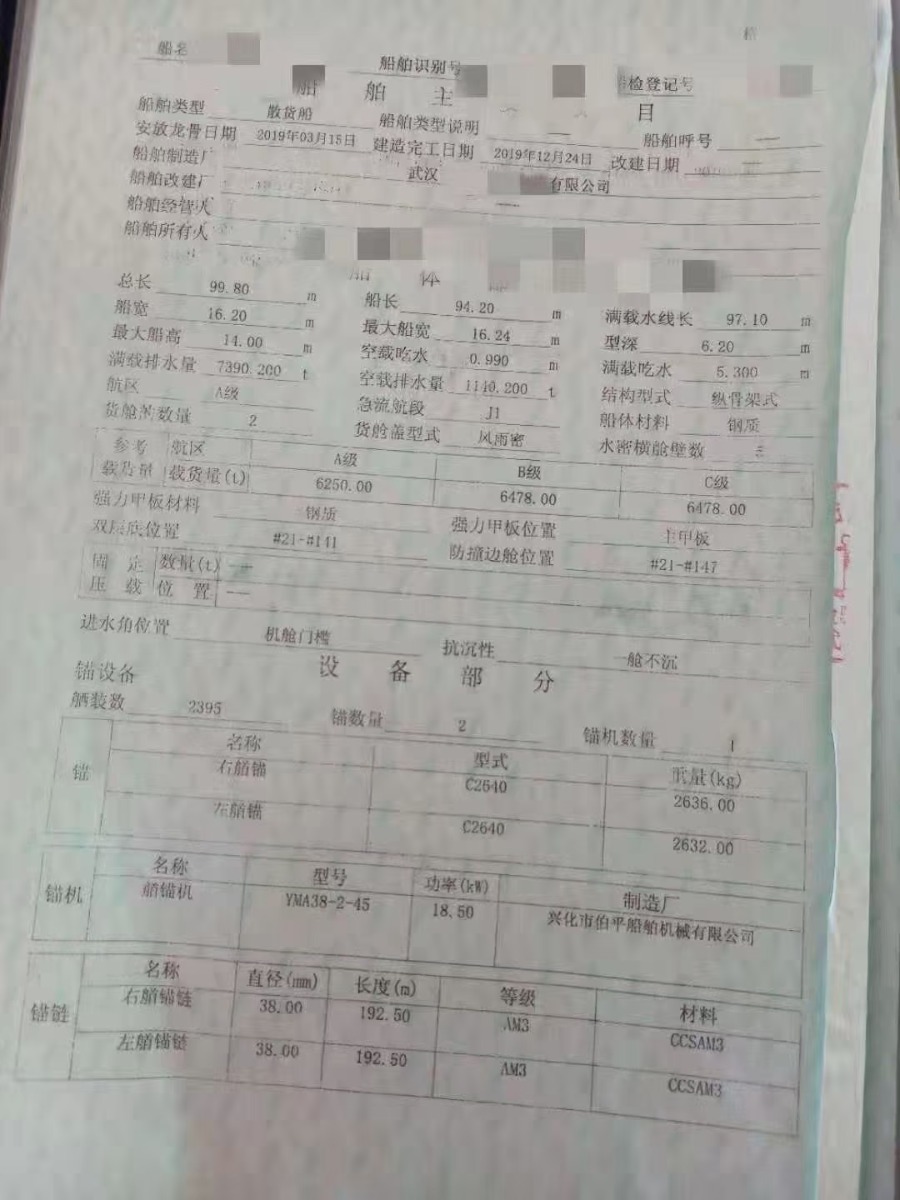 船名
船舶识别号
船检登记号
船舶主 目
船舶类型 散货船 船舶类型说明 — 船舶呼号 —
安放龙骨日期 2019年03月15日 建造完工日期 2019年12月24日 改建日期 —
船舶制造厂 武汉 有限公司
船舶改建厂
船舶经营人 —
船舶所有人
船体
总长 99.80 m 船长 94.20 m 满载水线长 97.10 m
船宽 16.20 m 最大船宽 16.24 m 型深 6.20 m
最大船高 14.00 m 空载吃水 0.990 m 满载吃水 5.300 m
满载排水量 7390.200 t 空载排水量 1140.200 t 结构型式 纵骨架式
航区 A级 急流航段 J1 船体材料 钢质
货舱的数量 2 货舱盖型式 风雨密 水密横舱壁数
参考载货量 航区 A级 B级 C级
载货量(t) 6250.00 6478.00 6478.00
强力甲板材料 钢质 强力甲板位置 主甲板
双层底位置 #21-#141 防撞边舱位置 #21-#147
固定压载 数量(t) —
位置 —
进水角位置 机舱门槛 抗沉性 一舱不沉
设备部分
锚设备
舾装数 2395 锚数量 2 锚机数量 1
锚 名称 型式 重量(kg)
右艏锚 C2640 2636.00
左艏锚 C2640 2632.00
锚机 名称 型号 功率(kW) 制造厂
艏锚机 YMA38-2-45 18.50 兴化市伯平船舶机械有限公司
锚链 名称 直径(mm) 长度(m) 等级 材料
右艏锚链 38.00 192.50 AM3 CCSAM3
左艏锚链 38.00 192.50 AM3 CCSAM3